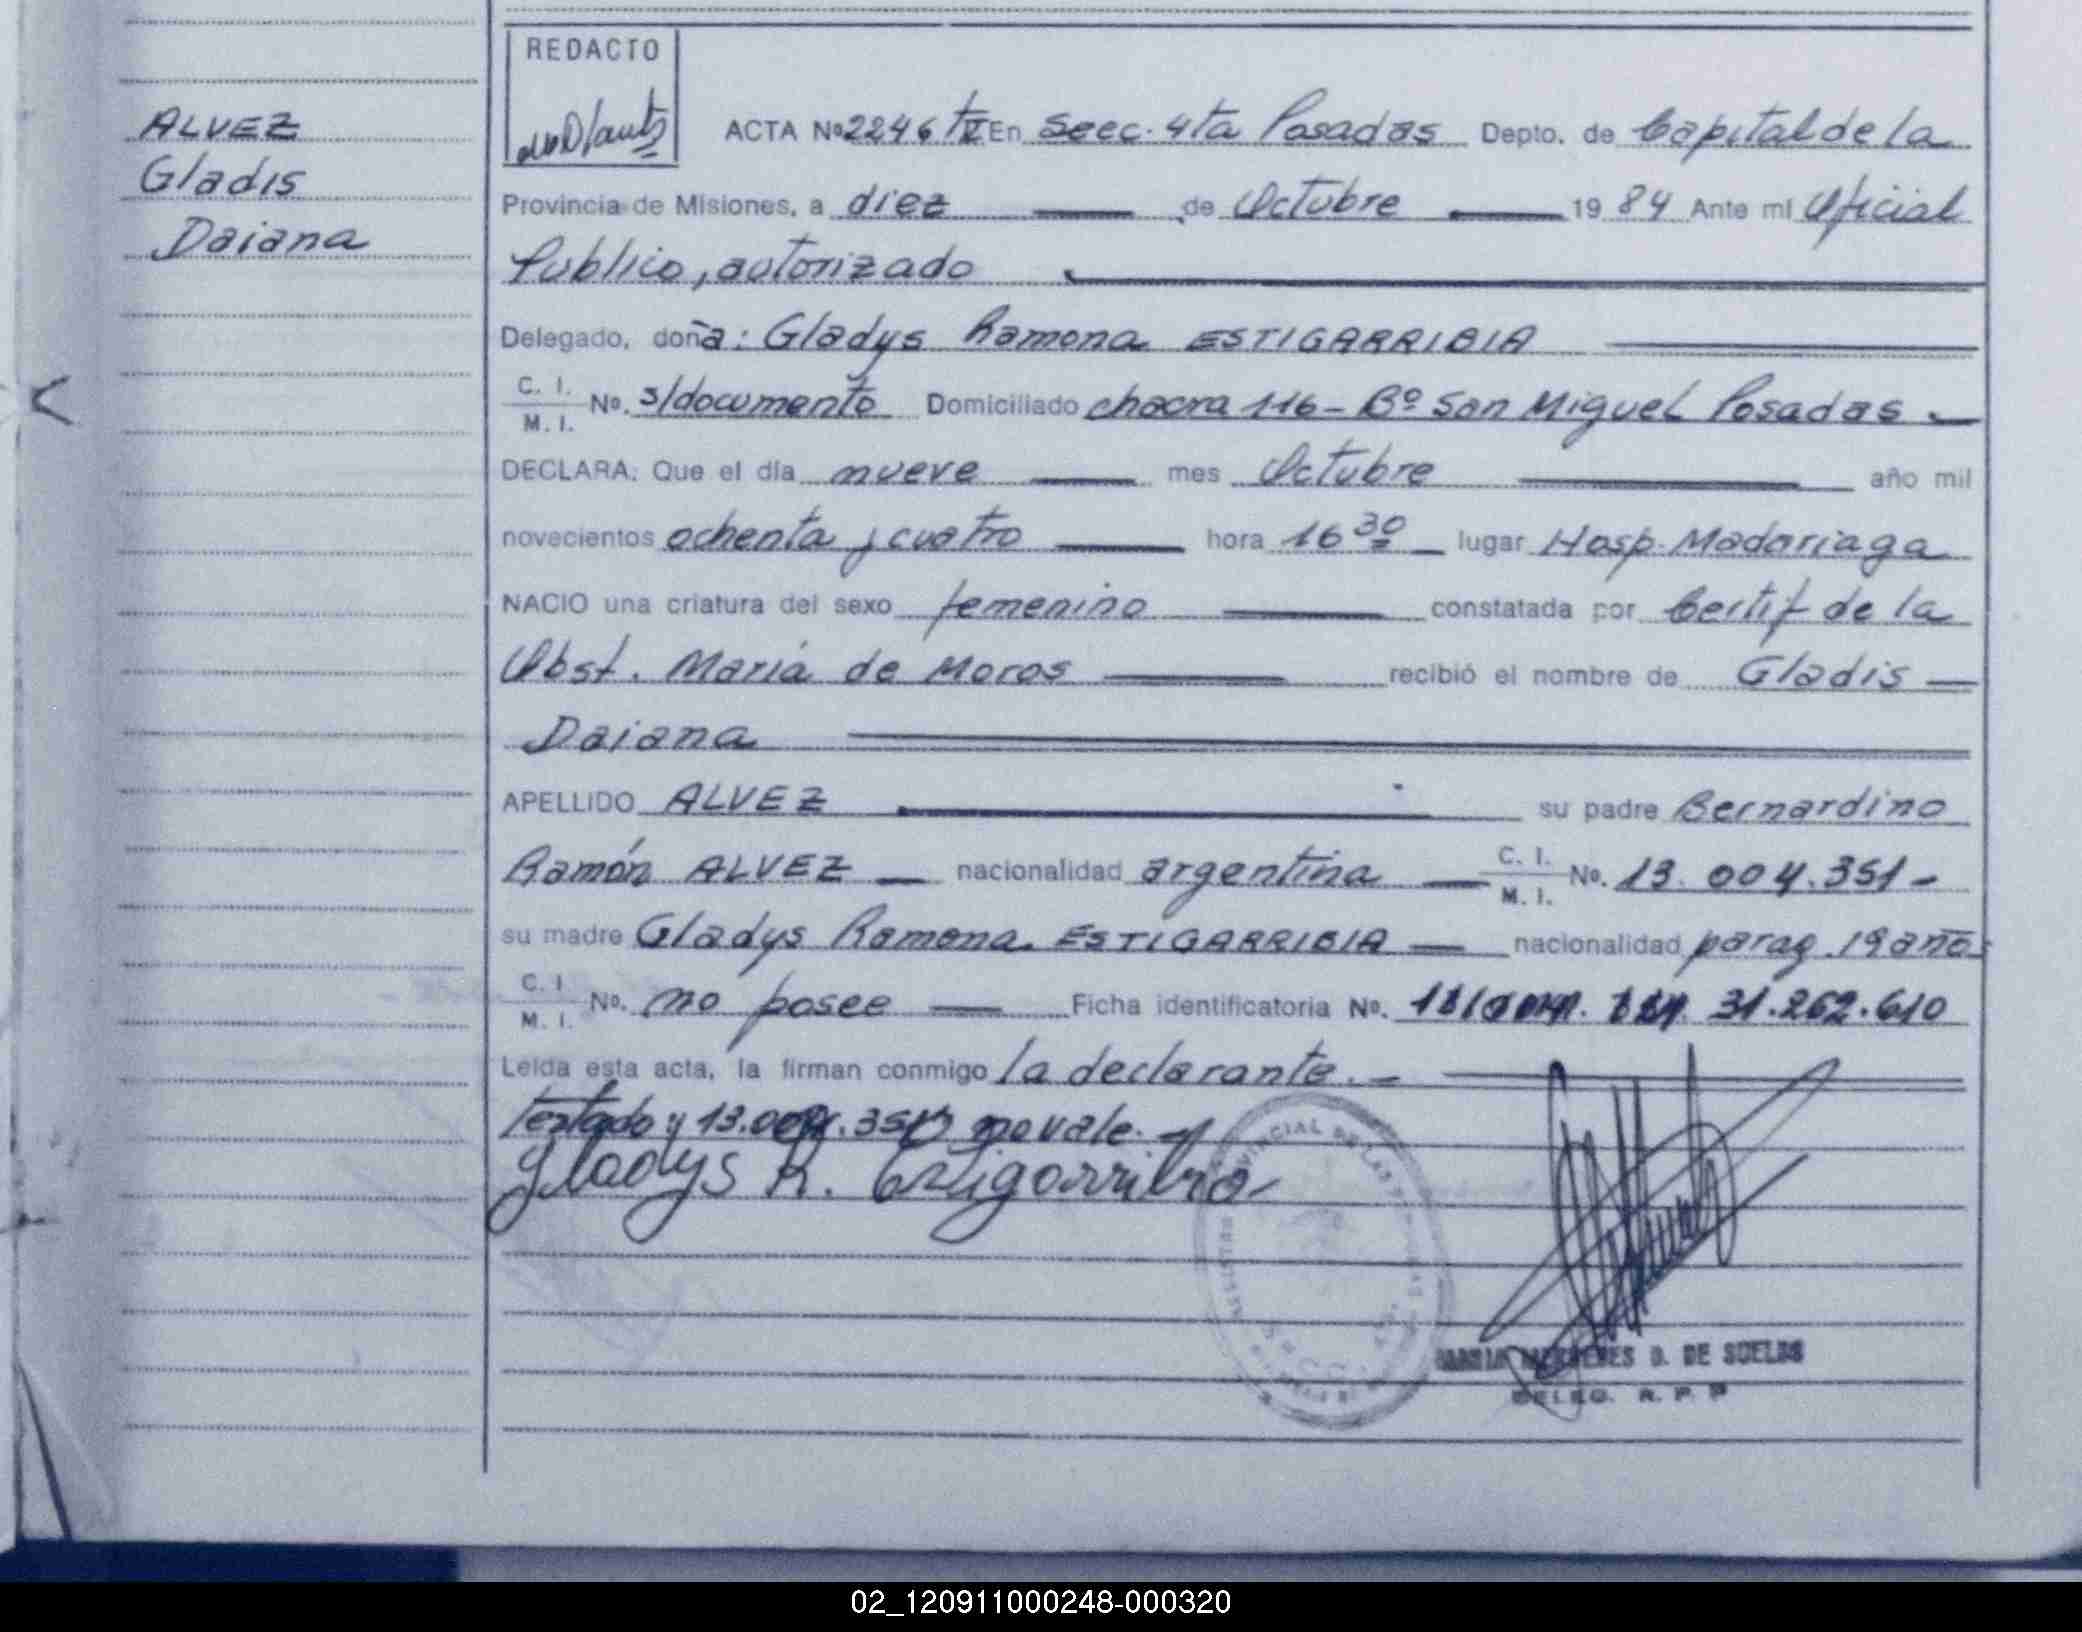 ALVEZ
Gladis
Daiana
REDACTO
ACTA Nº 2246 En Secc. 4ta Posadas Depto. de Capital de la
Provincia de Misiones, a diez de Octubre 19 84 Ante mi Oficial
Publico, autorizado
Delegado, doña: Gladys Ramona ESTIGARRIBIA
C. I.
M. I. Nº. s/documento Domiciliado chacra 116 - Bº San Miguel Posadas
DECLARA: Que el día nueve mes Octubre año mil
novecientos ochenta y cuatro hora 16 30 lugar Hosp. Madariaga
NACIO una criatura del sexo femenino constatada por Certif de la
Obst. María de Moros recibió el nombre de Gladis
Daiana
APELLIDO ALVEZ su padre Bernardino
Ramón ALVEZ nacionalidad argentina C. I. M. I. Nº. 13.004.351-
su madre Gladys Ramona ESTIGARRIBIA nacionalidad parag. 19 años
C. I.
M. I. Nº. no posee Ficha identificatoria Nº. 31.262.610
Leída esta acta, la firman conmigo la declarante.-
Testado: no vale.
Gladys R. Estigarribia
D. DE SUELDS
DELEG. R. P. P
02_120911000248-000320